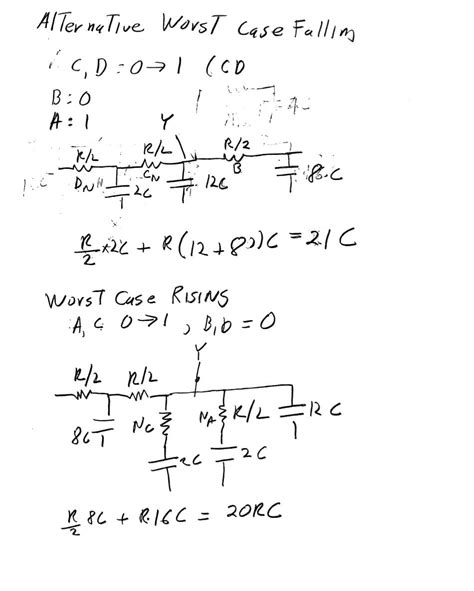 Alternative Worst Case Falling
C, D : 0→1 (CD
B: 0
A: 1 Y
R/2 R/2 R/2
D_N C_N B
2C 12C 8C
R/2 *2C + R(12+8))C = 21C
Worst Case Rising
A, C 0→1, B, D = 0
Y
R/2 R/2
8C N_C N_A R/2 12C
2C 2C
R/2 8C + R.16C = 20RC